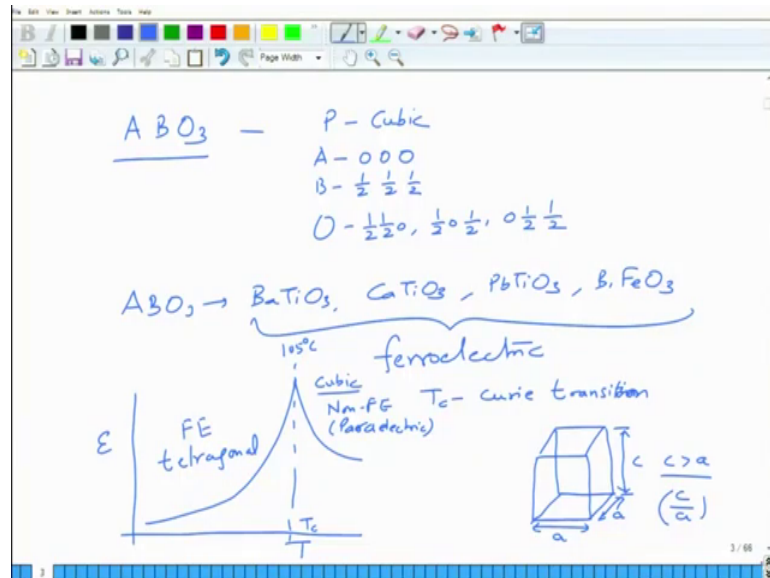 File Edit View Insert Actions Tools Help
B I
Page Width
ABO3 — P – Cubic
A – 0 0 0
B – 1/2 1/2 1/2
O – 1/2 1/2 0, 1/2 0 1/2, 0 1/2 1/2
ABO3 → BaTiO3, CaTiO3, PbTiO3, BiFeO3
ferroelectric
105°C
Cubic
Non-FE
(Paraelectric)
Tc – curie transition
ε
FE
tetragonal
Tc
T
c
a
a
c>a
(c/a)
3 / 66
3